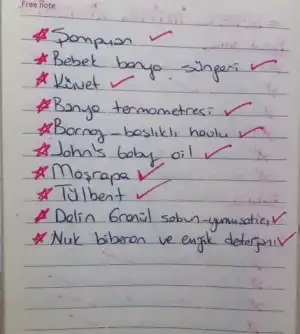 Free note
Şampuan
Bebek banyo süngeri
Küvet
Banyo termometresi
Bornoz - başlıklı havlu
John's baby oil
Maşrapa
Tülbent
Dalin Granül sabun-yumuşatıcı
Nuk biberon ve emzik deterjanı